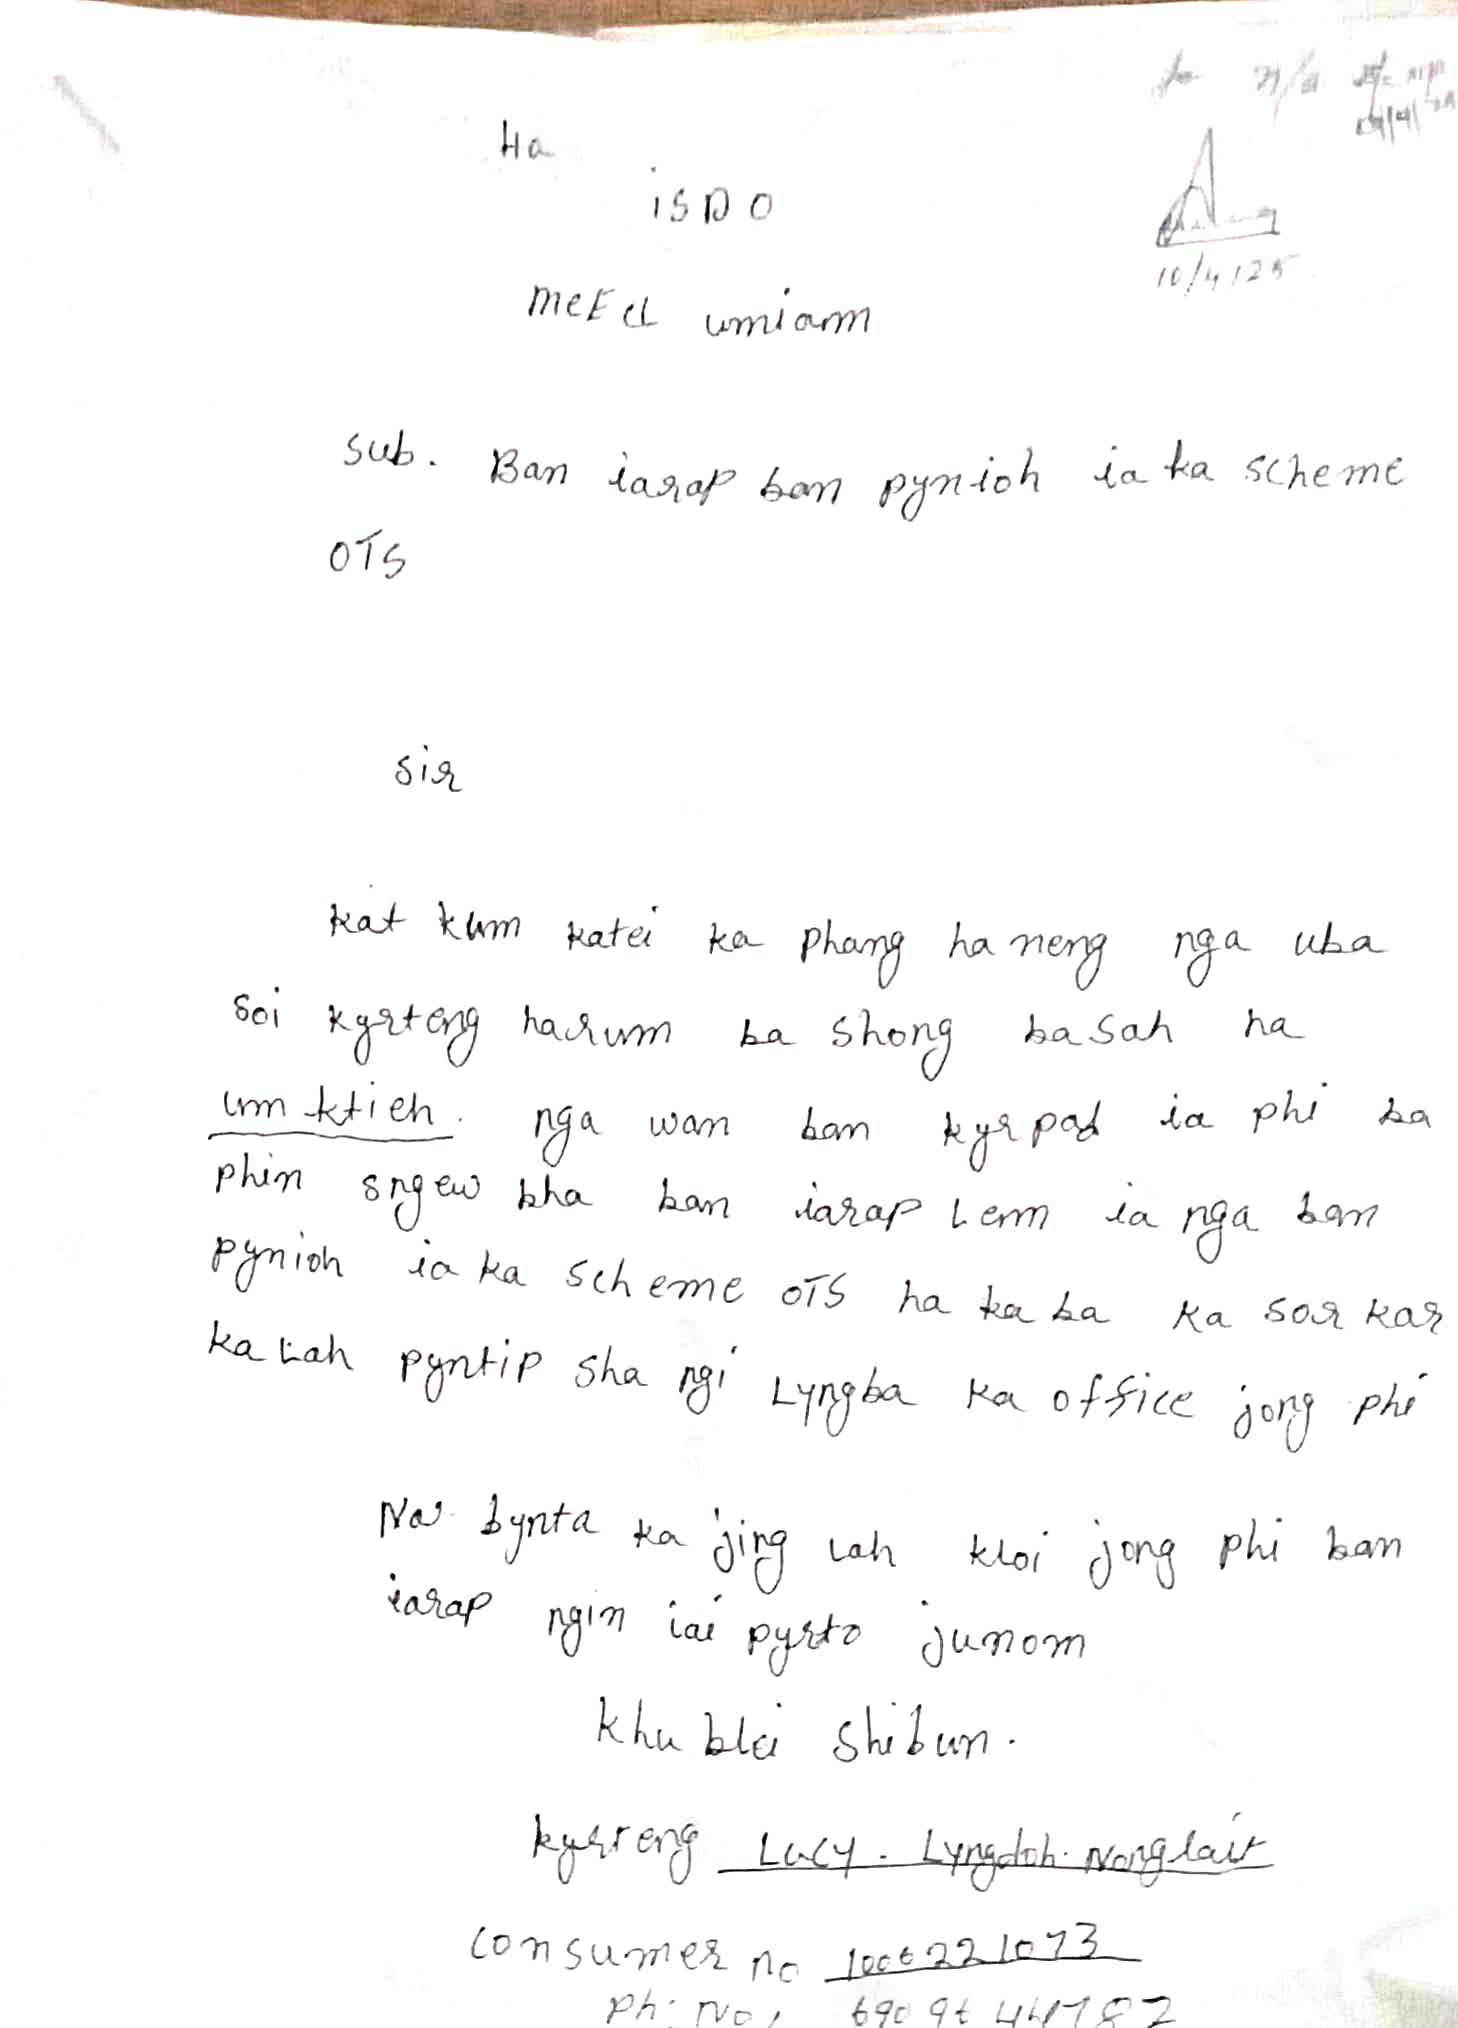 Ha
iSDO
MeECL umiam
10/4/25
Sub. Ban iarap ban pynioh ia ka scheme
OTS
Sir
kat kum katei ka phang ha neng nga uba
Soi kyrteng harum ba shong ba sah ha
um ktieh. nga wan ban kyrpad ia phi ba
phin sngew bha ban iarap Lem ia nga ban
pynioh ia ka scheme OTS ha ka ba ka sor kar
ka Lah pyntip sha ngi Lyngba ka office jong phi
Na bynta ka jing Lah kloi jong phi ban
iarap ngin iai pyrto junom
Khu blei Shibun.
kyrteng Lucy. Lyngdoh. Nonglait
Consumer no
Ph. No.